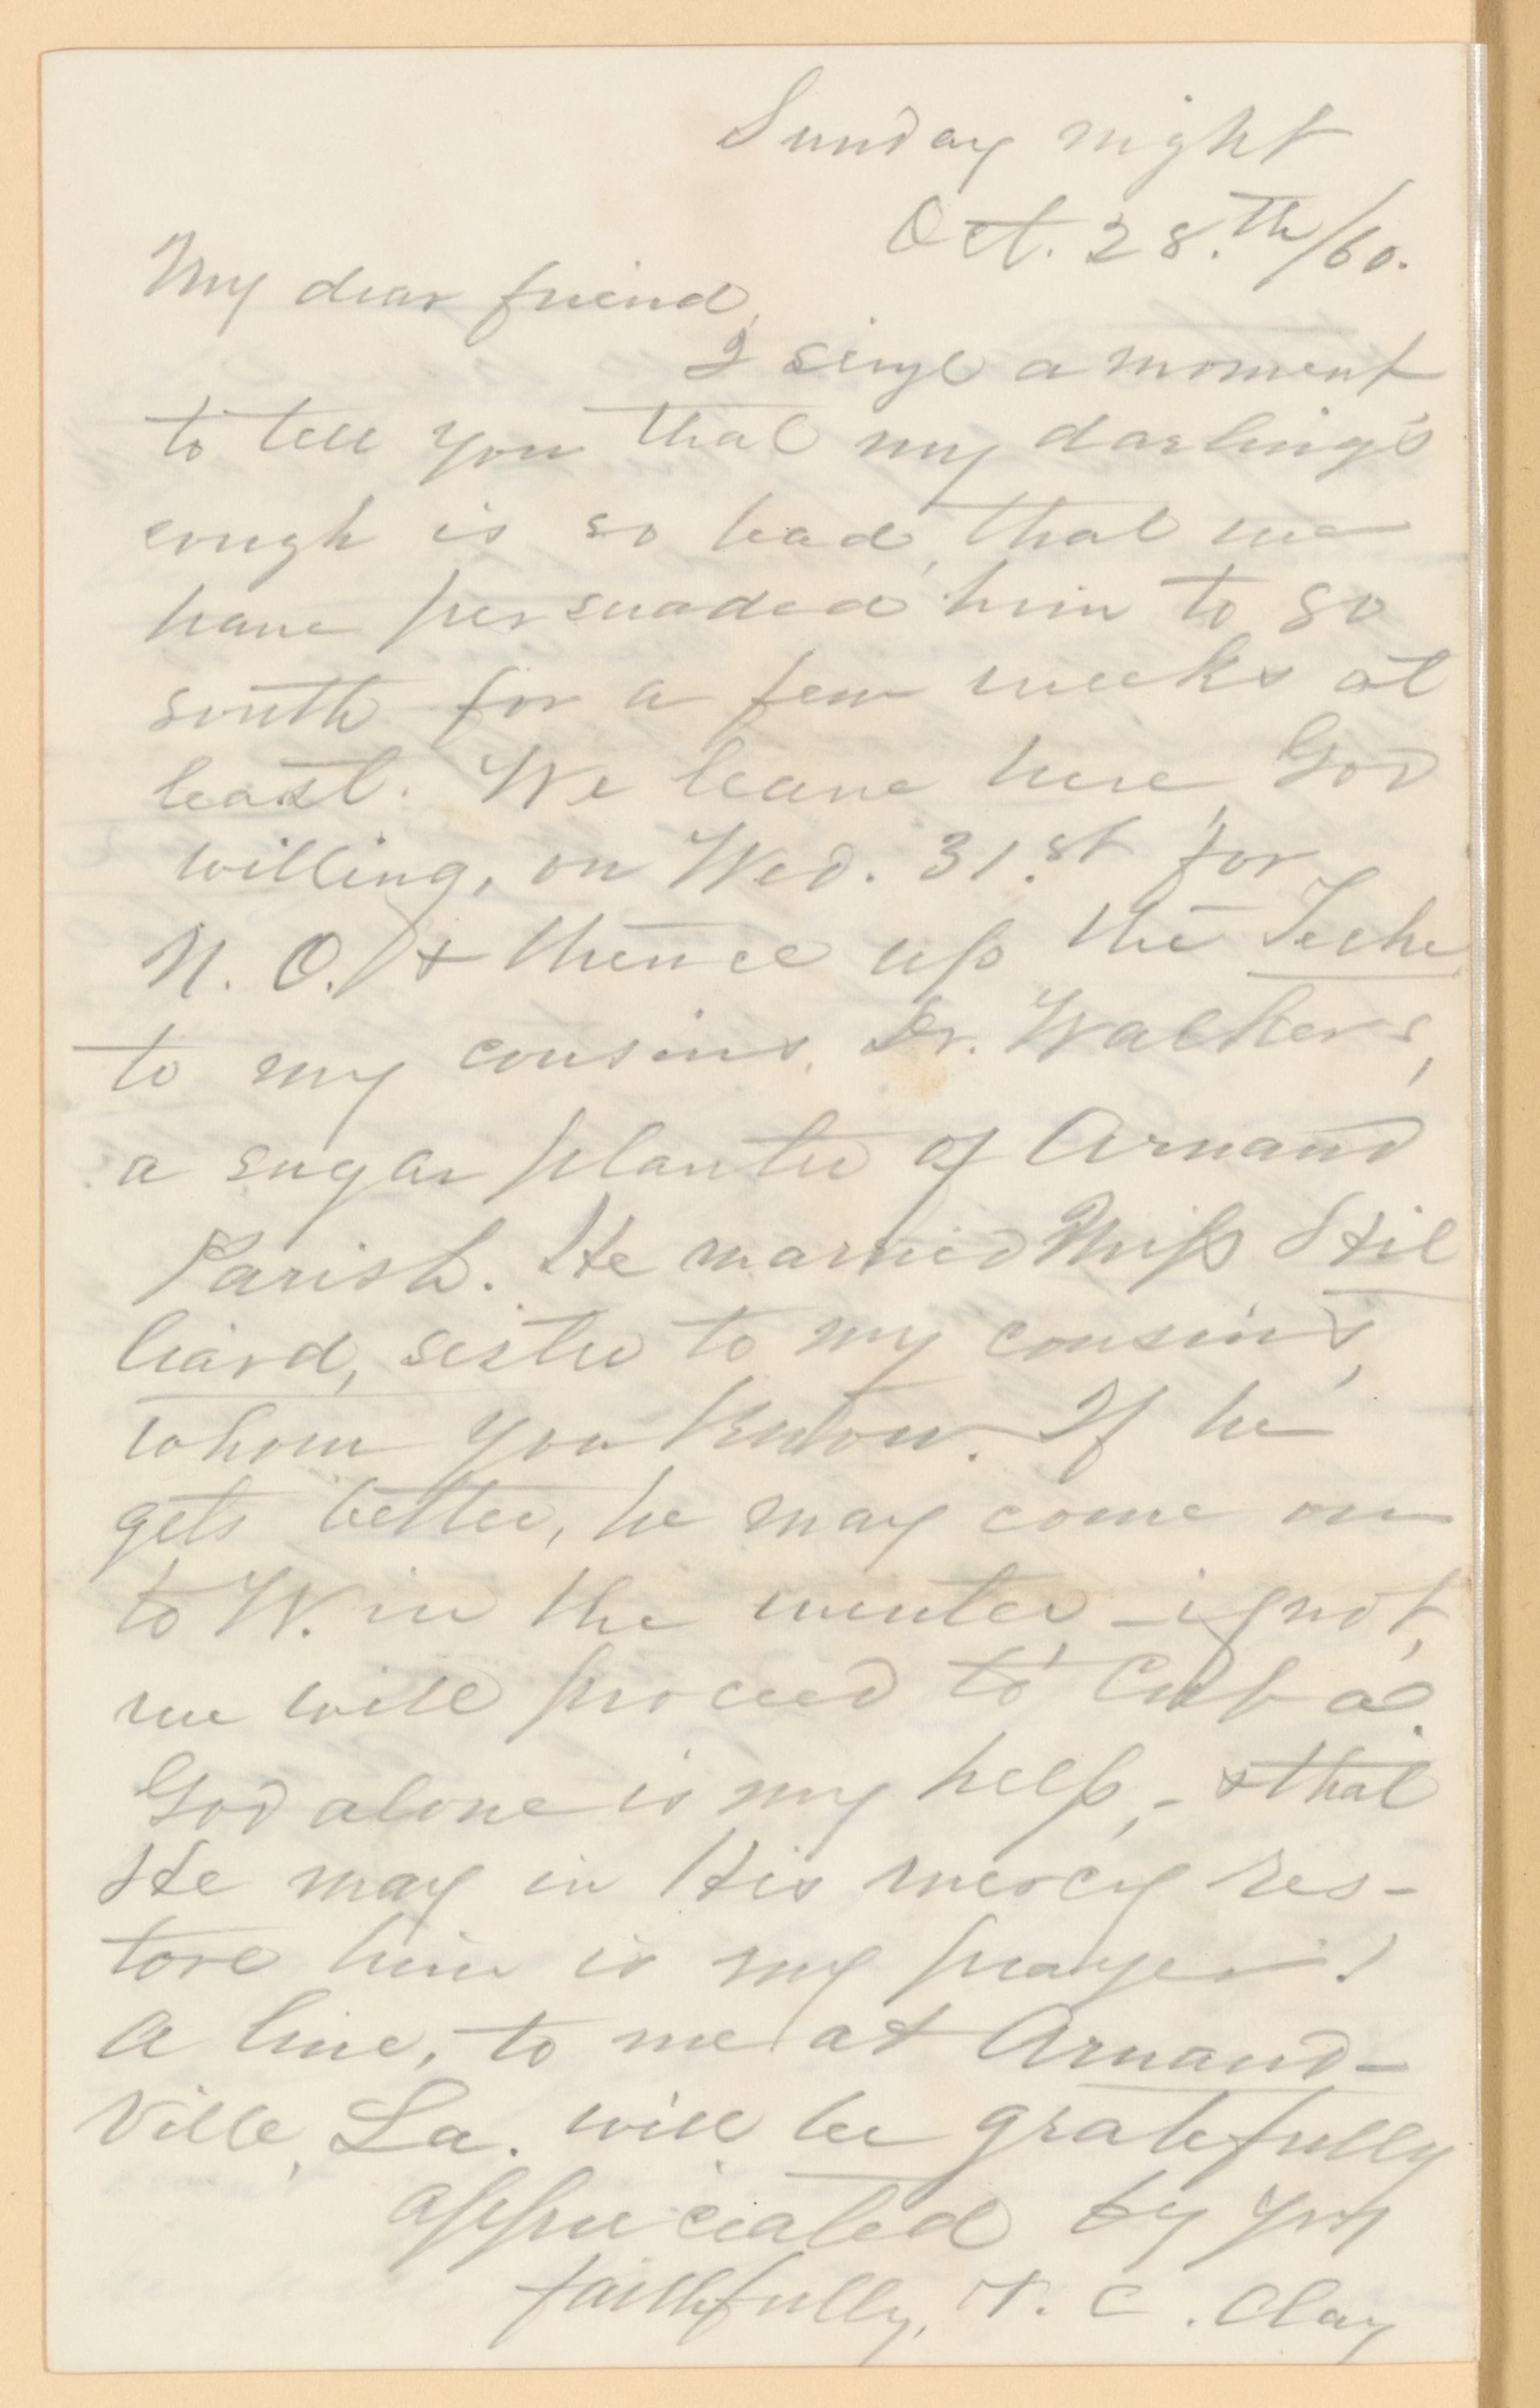 Sunday night
Oct. 28.th/60.
My dear friend,
I seize a moment
to tell you that my darling's
cough is so bad, that we
have persuaded him to go
south for a few weeks at
least. We leave here, God
willing, on Wed. 31.st for
N. O. & thence up the Teche
to my cousins, Dr. Walkers,
a sugar planter of Arnaud
Parish. He married Miss Hil
liard, sister to my cousins,
whom you know. If he
gets better, he may come on
to W. in the winter - if not,
we will proceed to Cuba.
God alone is my help, - & that
He may in His mercy res-
tore him is my prayer!
A line, to me at Arnaud-
Ville, La. will be gratefully
appreciated by yrs
faithfully, V. C. Clay